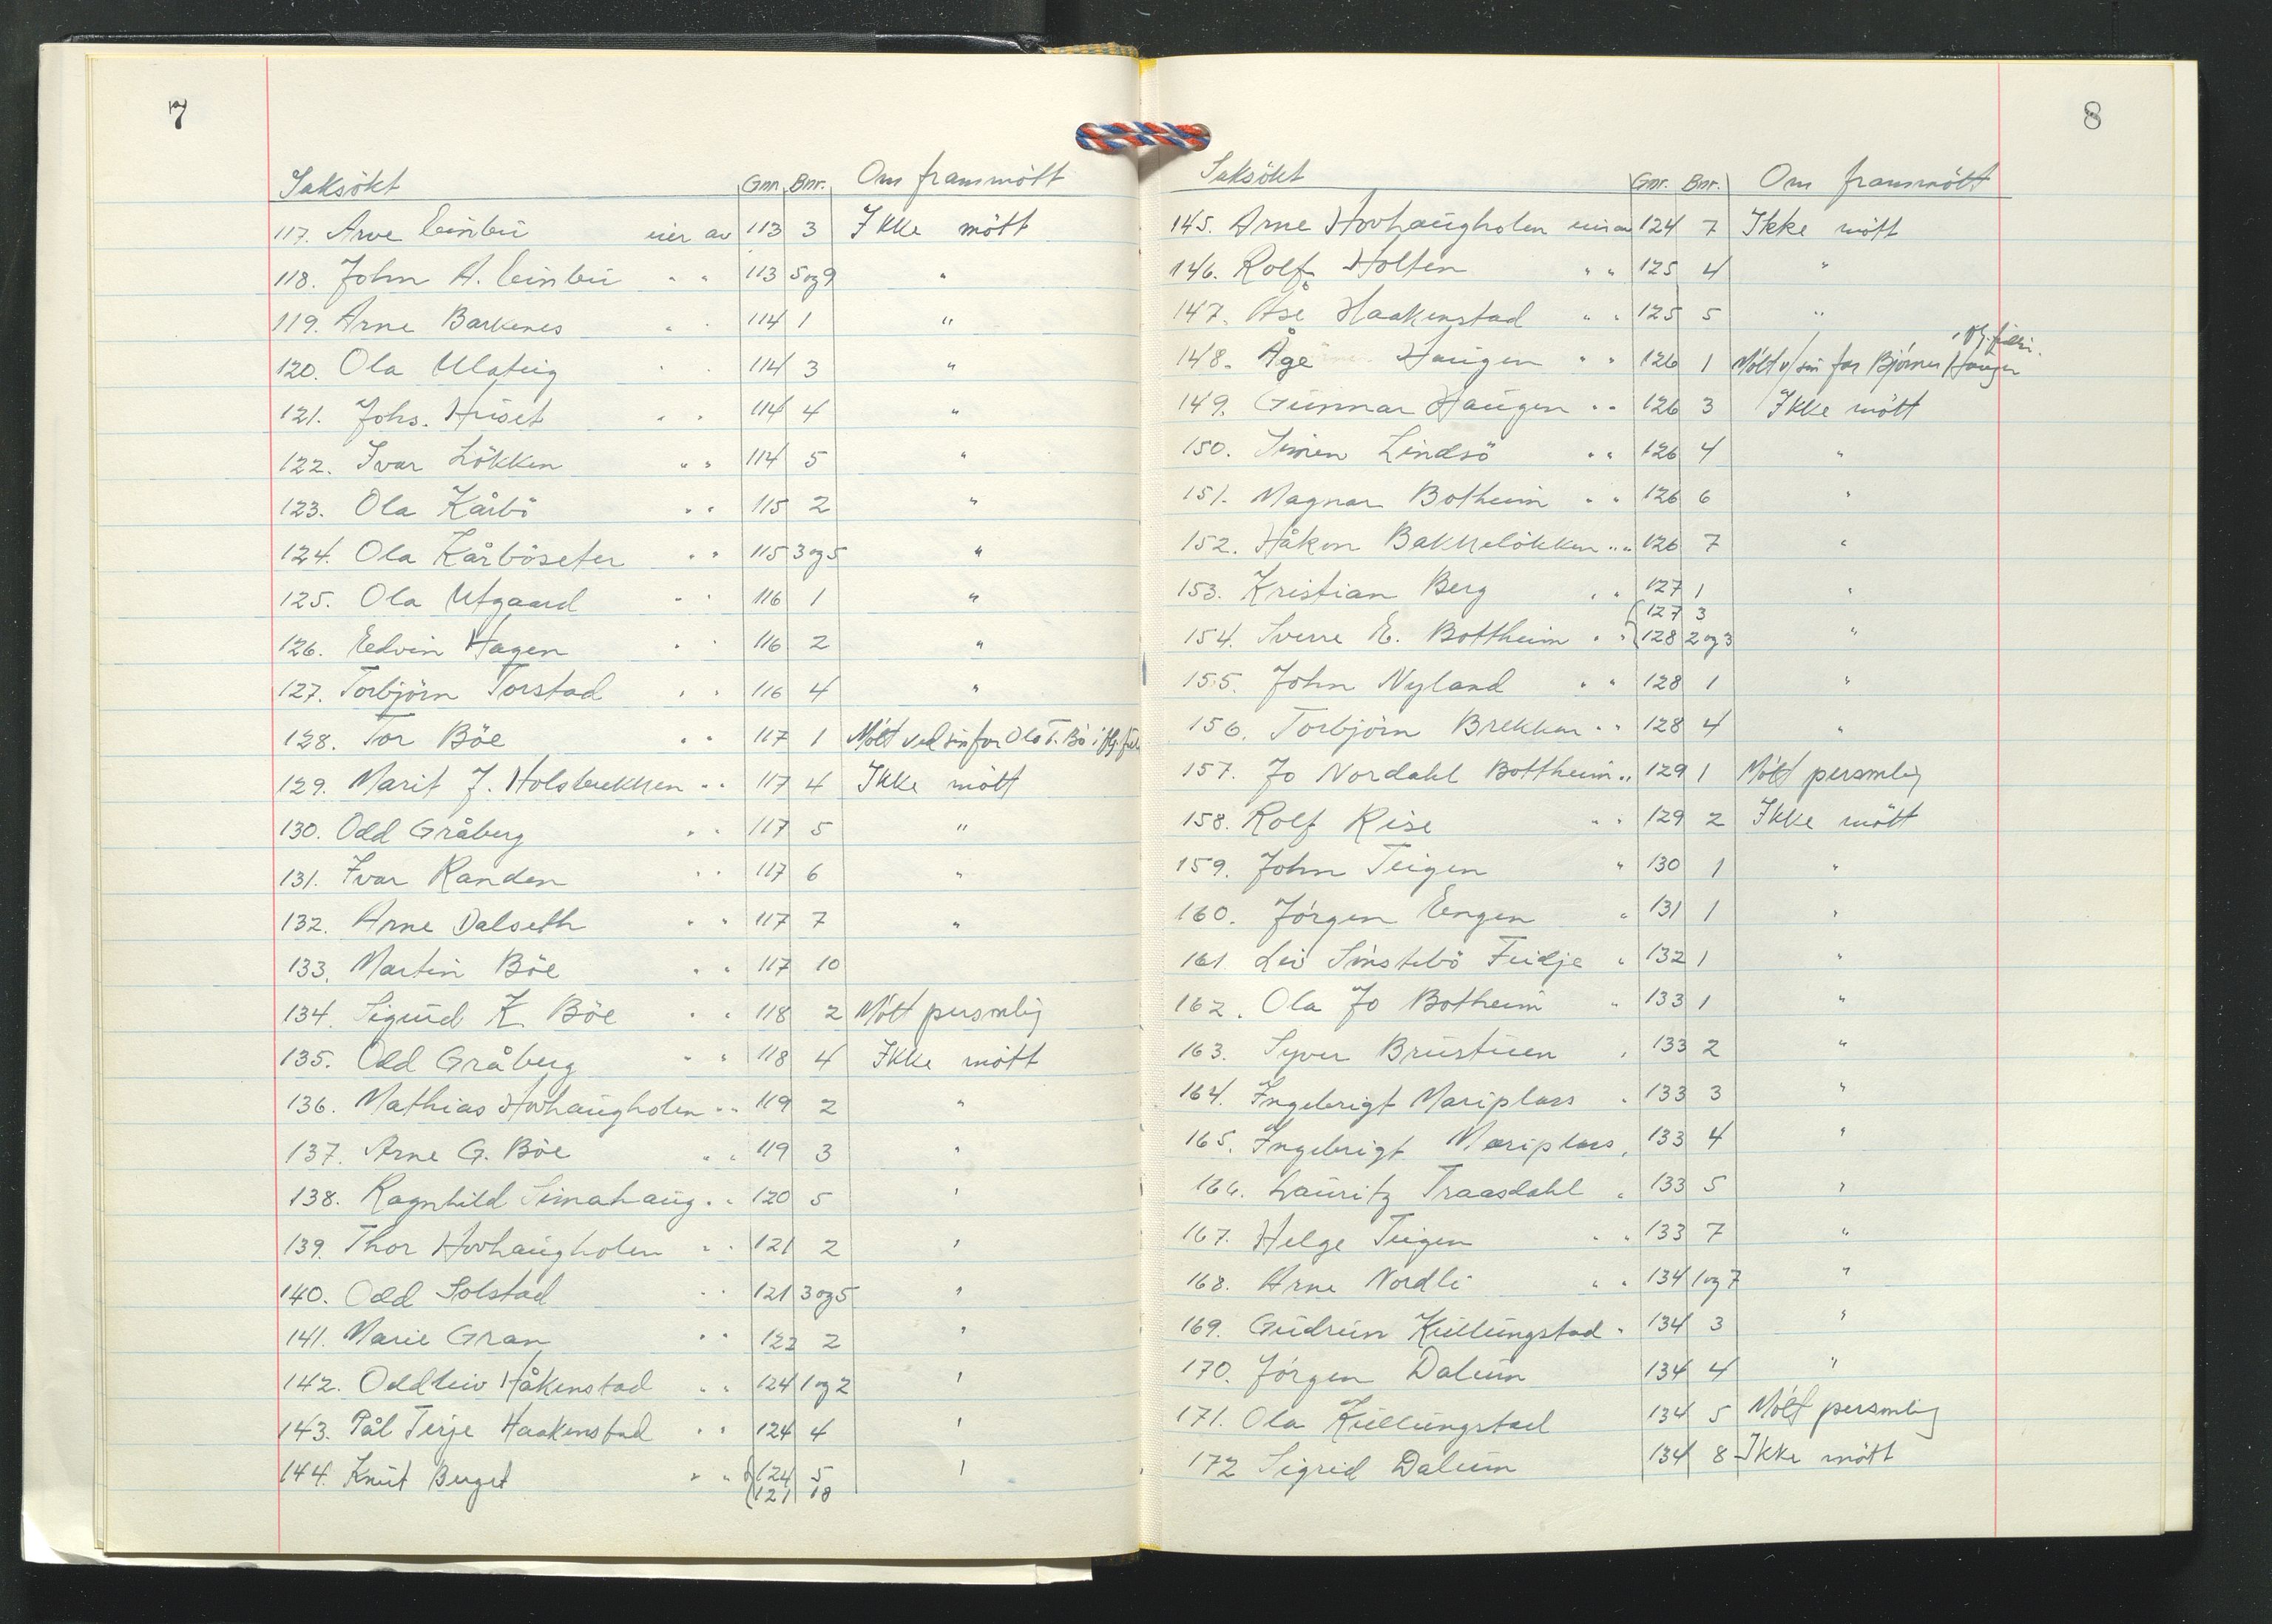 7
Saksökt Gnr. Bnr. Om frammött
117. Arve Einbu eier av 113 3 Ikke mött
118. John A. Einbu " " 113 5 og 9 "
119. Arne Barkenes " " 114 1 "
120. Ola Ulateig " " 114 3 "
121. Johs. Huset " " 114 4 "
122. Ivar Lökken " " 114 5 "
123. Ola Kårbö " " 115 2 "
124. Ola Kårböseter " " 115 3 og 5 "
125. Ola Utgaard " " 116 1 "
126. Edvin Hagen " " 116 2 "
127. Torbjörn Torstad " " 116 4 "
128. Tor Böe " " 117 1 Mött ved sin far Ola T. Bö
129. Marit J. Holsbrekken " " 117 4 Ikke mött
130. Odd Gråberg " " 117 5 "
131. Ivar Randen " " 117 6 "
132. Arne Dalseth " " 117 7 "
133. Martin Böe " " 117 10
134. Sigurd K. Böe " " 118 2 Mött personlig
135. Odd Gråberg " " 118 4 Ikke mött
136. Mathias Hovhaugholen " " 119 2 "
137. Arne G. Böe " " 119 3 "
138. Ragnhild Simahaug " " 120 5 "
139. Thor Hovhaugholen " " 121 2 "
140. Odd Solstad " " 121 3 og 5 "
141. Marie Gran " " 122 2 "
142. Oddleiv Håkenstad " " 124 1 og 2 "
143. Pål Terje Haakenstad " " 124 4 "
144. Knut Berget " " 124 5 "
121 18
8
Saksökt Gnr. Bnr. Om frammött
145. Arne Hovhaugholen eier av 124 7 Ikke mött
146. Rolf Holten " " 125 4 "
147. Åse Haakenstad " " 125 5 "
148. Åge Haugen " " 126 1 Mött v/ sin far Björner Haugen
149. Gunnar Haugen " " 126 3 Ikke mött
150. Simen Lindsö " " 126 4 "
151. Magnar Botheim " " 126 6 "
152. Håkon Bakkelökken " " 126 7 "
153. Kristian Berg " " 127 1 "
127 3
154. Sverre E. Bottheim " " 128 2 og 3 "
155. John Nyland " " 128 1 "
156. Torbjörn Brekken " " 128 4 "
157. Jo Nordahl Bottheim " " 129 1 Mött personlig
158. Rolf Rise " " 129 2 Ikke mött
159. John Teigen " 130 1 "
160. Jörgen Engen " 131 1 "
161. Liv Sinstebö Feidje " 132 1 "
162. Ola Jo Botheim " 133 1 "
163. Syver Brustuen " 133 2 "
164. Ingebrigt Mariplass " 133 3 "
165. Ingebrigt Mariplass " 133 4 "
166. Lauritz Traasdahl " 133 5 "
167. Helge Teigen " " 133 7 "
168. Arne Nordli " " 134 1 og 7 "
169. Gudrun Kullungstad " 134 3 "
170. Jörgen Dalum 134 4 "
171. Ola Kullungstad 134 5 Mött personlig
172 Sigrid Dalum 134 8 Ikke mött